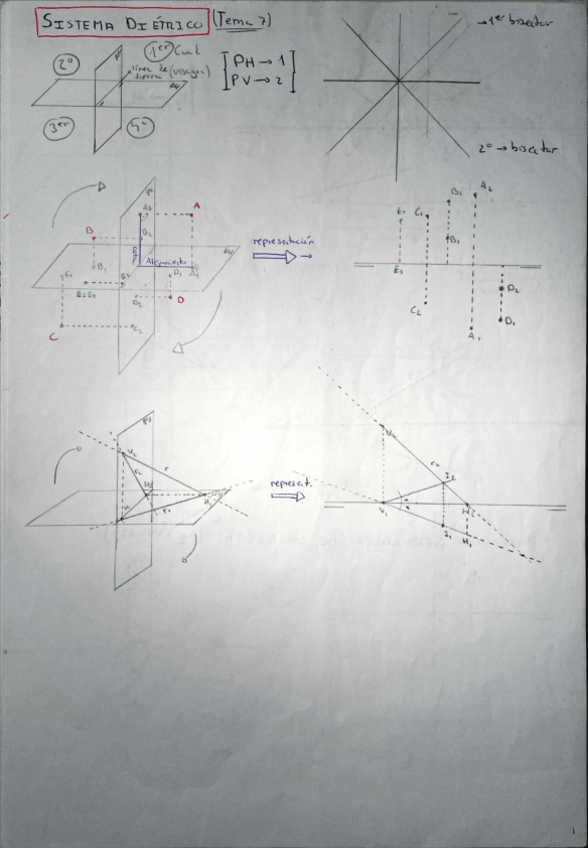 SISTEMA DIÉTRICO (Tema 7)
→ 1er bisector
2º
1er Cuad
línea de tierra
PV
PH
[PH → 1
PV → 2]
3er
4º
2º → bisector
PV
A2
A
B
B2
Cota
PH
Alejamiento
C1
B1
E2
D1
A1
E≡E1
D2
D
C
C2
representación
→
E1
C1
B2
A2
B1
E2
C2
D2
D1
A1
PV
V2
r
r2
H2
H1
V1
r1
represent.
V2
r2
I2
V1
α
H2
I1
H1
1